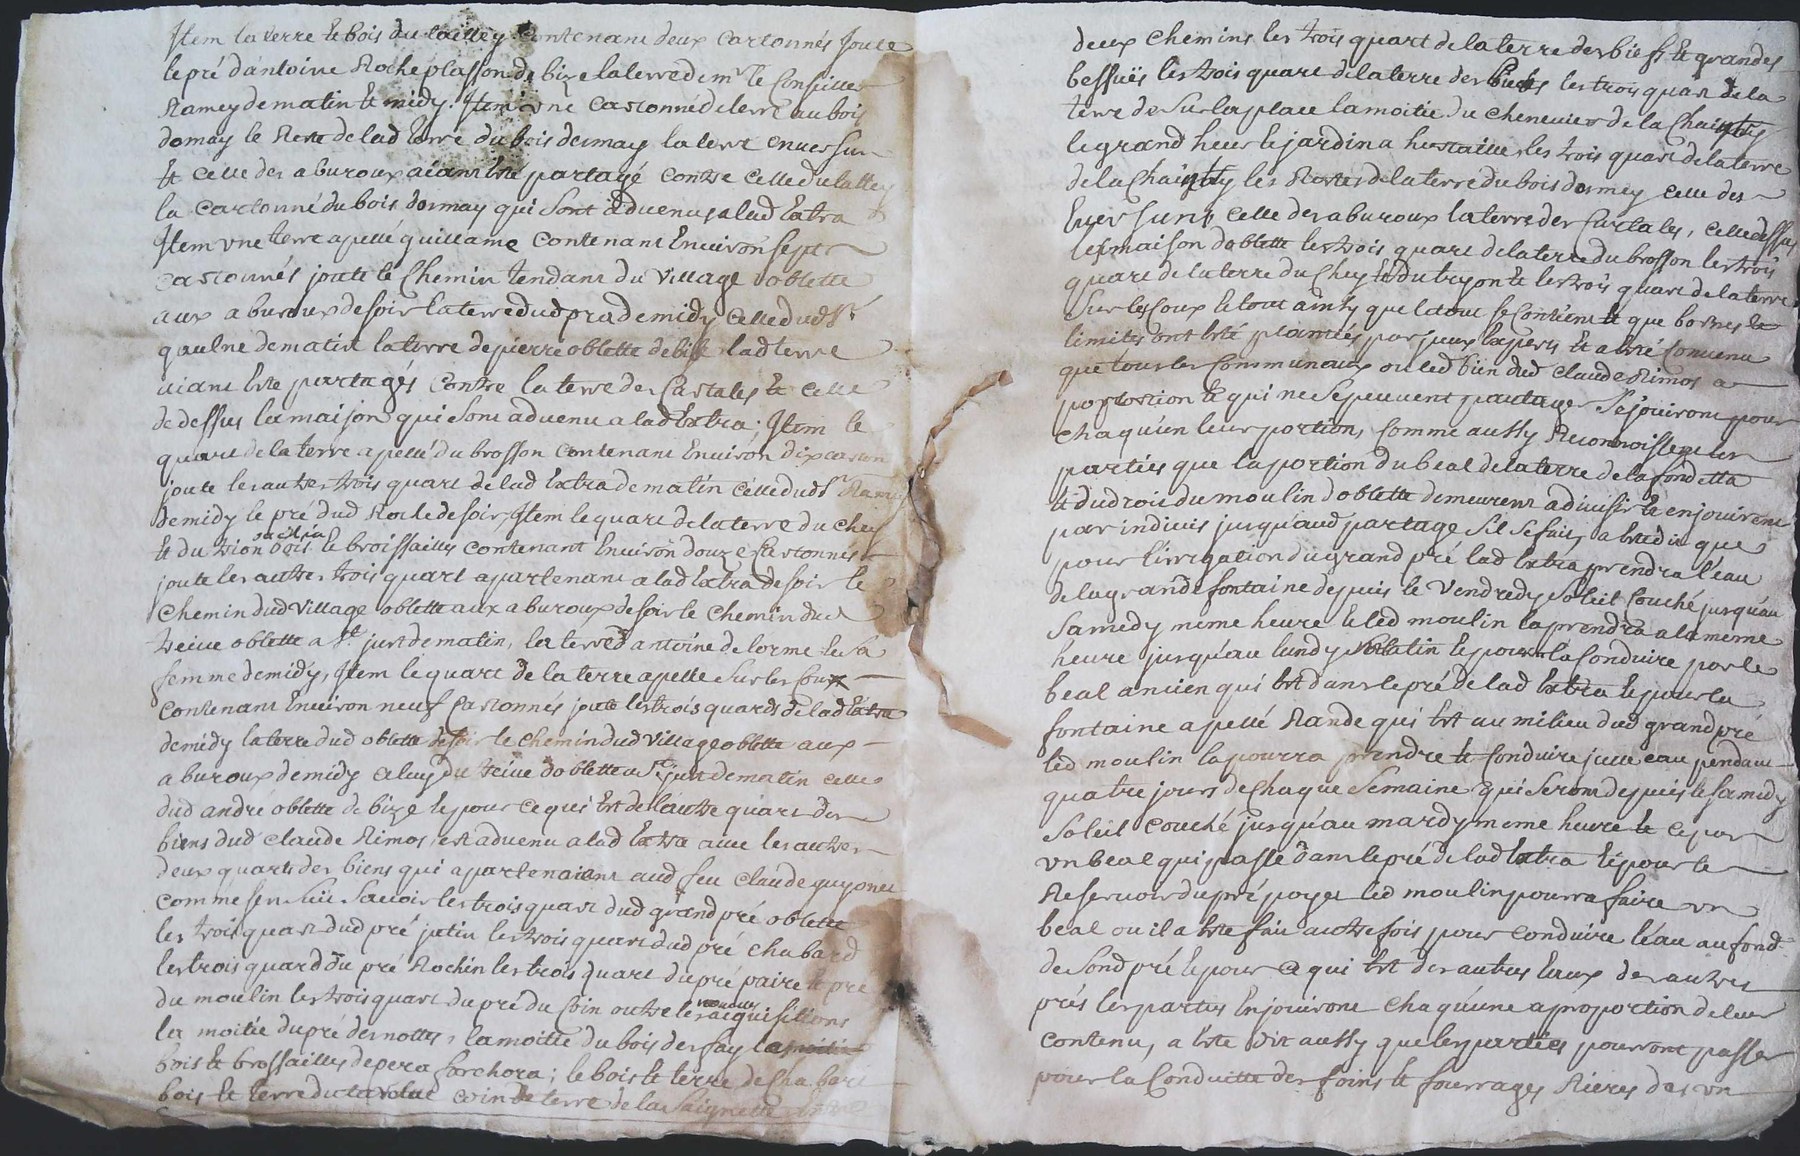 Item la terre et bois du lailley contenant deux cartonnés joute
le pré d'antoine Roche plasson de bize la terre de mr le Consillier
Ramey de matin et midy. Item une cartonnée de terre au bois
dornay le Reste de lad terre du bois dernay la terre enversun
et celle des aburoux aiant été partagé contre celle du lalley
la cartonné du bois dornay qui sont advenus a lad Extra
Item une terre apellé guillame contenant Environ sept
cartonnés joute le Chemin tendant du village doblette
aux aburoux de soir la terre dud prade midy celle dud Sr
gaulne de matin la terre de pierre oblette de bise lad terre
aiant été partagés contre la terre des Cartales et celle
de dessus la maison qui sont advenu a lad Extra ; Item le
quart de la terre apellé du brosson contenant Environ dix carton
joute les autres trois quart de lad Extra de matin celle dud Sr Ramey
de midy le pré dud Roche de soir, Item le quart de la terre du chey
et du trion bois et broissailles contenant Environ douze Cartonnés
joute les autres trois quart apartenant a lad Extra de soir le
chemin dud village oblette aux aburoux de soir le chemin dud
oblette a St just de matin, la terre d'antoine delorme et sa
femme de midy, Item le quart de la terre apellé sur les Coux
contenant Environ neuf Cartonnés joute les trois quards de lad Extra
de midy la terre dud oblette de soir le chemin dud village oblette aux
aburoux de midy celuy du doblette a St just de matin celle
dud andré oblette de bize et pour ce qui Est de l'autre quart des
biens dud Claude Rimos est advenu a lad Extra avec les autres
deux quarts des biens qui apartenaient aud feu Claude guyonet
comme s'en suit Savoir les trois quart dud grand pré oblette
les trois quart dud pré jatin les trois quart dud pré chabard
les trois quard du pré Rochin les trois quart du pré paire et pré
du moulin les trois quart du pré du Coin outre les nouveaux acquisitions
la moitié du pré des nottes, la moitié du bois des fay
bois et brossailles de pera forchora ; le bois et terre de Chabari
bois et terre du coin de terre de la Saignette
deux chemins les trois quart de la terre des biefs et grandes
bessuës les trois quart de la terre des les trois quart de la
terre de sur la place la moitié du chenevier de la Chaintry
le grand heur le jardin a les trois quart de la terre
de la Chaintry les Restes de la terre du bois dornay celle des
Enversuns celle des aburoux la terre des Cartales, celle dessus
la maison doblette les trois quart de la terre du brosson les trois
quart de la terre du chey et du tryon et les trois quart de la terre
sur les Coux le tout ainsy que le tout se Contient et que bornes et
limites ont été plantées par jeux Expers et a été Convenu
que tous les Communaux ou led bien dud Claude Rimos a
portion et qui ne se peuvent partager se jouiront pour
chaqu'un leur portion, Comme aussy Reconnoissent les
parties que la portion du beal de la terre de la fondetta
et du droit du moulin doblette demeurent a diviser et en jouiront
par indivis jusqu'aud partage s'il se fait, a été dit que
pour l'irrigation du grand pré lad Extra prendra l'eau
de la grande fontaine depuis le Vendredy soleil Couché jusqu'au
Samedy meme heure et led moulin la prendra a la meme
heure jusqu'au lundy et pour la Conduire par le
beal ancien qui Est dans le pré de lad Extra et pour la
fontaine apellé Rande qui Est au milieu dud grand pré
led moulin la pourra prendre et Conduire jcelle eau pendant
quatre jours de Chaque Semaine qui seront depuis le samidy
Soleil Couché jusqu'au mardy meme heure et ce par
un beal qui passe dans le pré de lad Extra et pour le
Reservoir du pré poyet led moulin pourra faire un
beal ou il a été fait autrefois pour conduire l'eau au fond
de Sond pré et pour ce qui Est des autres Eaux des autres
prés les parties En jouiront Chaqu'une a proportion de leur
contenu, a été dit aussy que les parties pourront passer
pour la Conduitte des foins et fourrages Rieres des un